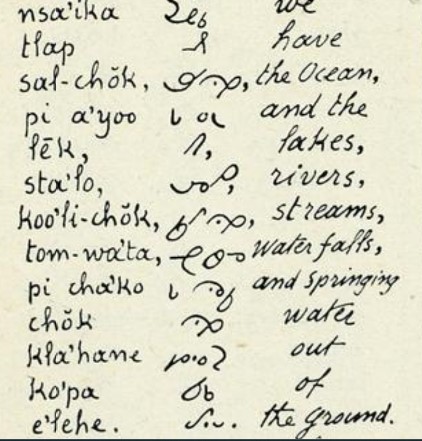 nsa'ika we
tlap have
sal-chŏk, the Ocean,
pi a'yoo and the
lēk, lakes,
sta'lo, rivers,
koo'li-chŏk, streams,
tom-wa'ta, Water falls,
pi cha'ko and springing
chŏk water
kla'hane out
ko'pa of
e'lehe. the ground.